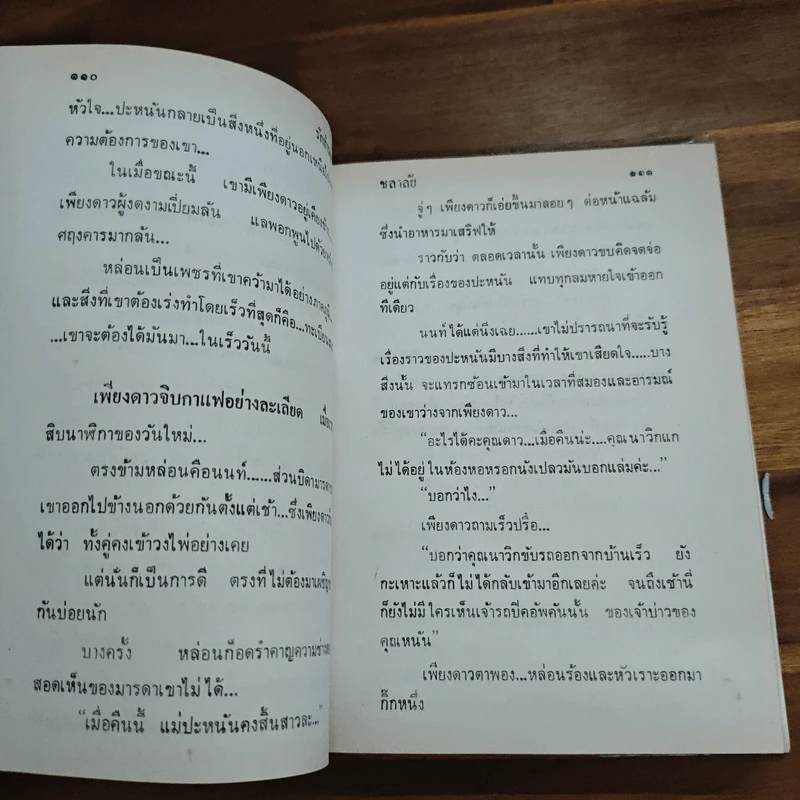 ๑๑๐
หัวใจ...ปะหนันกลายเป็นสิ่งหนึ่งที่อยู่นอกเหนือ
ความต้องการของเขา...
ในเมื่อขณะนี้ เขามีเพียงดาวอยู่เคียงข้าง
เพียงดาวผู้งดงามเปี่ยมล้น แลพอกพูนไปด้วย
ศฤงคารมากล้น...
หล่อนเป็นเพชรที่เขาคว้ามาได้อย่าง
และสิ่งที่เขาต้องเร่งทำโดยเร็วที่สุดก็คือ...ทะเบียน
...เขาจะต้องได้มันมา...ในเร็ววันนี้
เพียงดาวจิบกาแฟอย่างละเลียด
สิบนาฬิกาของวันใหม่...
ตรงข้ามหล่อนคือนนท์......ส่วนบิดามารดา
เขาออกไปข้างนอกด้วยกันตั้งแต่เช้า...ซึ่งเพียงดาว
ได้ว่า ทั้งคู่คงเข้าวงไพ่อย่างเคย
แต่นั่นก็เป็นการดี ตรงที่ไม่ต้องมาเผชิญ
กันบ่อยนัก
บางครั้ง หล่อนก็อดรำคาญความช่าง
สอดเห็นของมารดาเขาไม่ได้...
“เมื่อคืนนี้ แม่ปะหนันคงสิ้นสาวละ...”
ชลาลัย
๑๑๑
จู่ๆ เพียงดาวก็เอ่ยขึ้นมาลอยๆ ต่อหน้าแฉล้ม
ซึ่งนำอาหารมาเสริฟให้
ราวกับว่า ตลอดเวลานั้น เพียงดาวขบคิดจดจ่อ
อยู่แต่กับเรื่องของปะหนัน แทบทุกลมหายใจเข้าออก
ทีเดียว
นนท์ได้แต่นิ่งเฉย......เขาไม่ปรารถนาที่จะรับรู้
เรื่องราวของปะหนันมีบางสิ่งที่ทำให้เขาเสียดใจ.....บาง
สิ่งนั้น จะแทรกซ้อนเข้ามาในเวลาที่สมองและอารมณ์
ของเขาว่างจากเพียงดาว...
“อะไรได้คะคุณดาว...เมื่อคืนน่ะ....คุณนาวิกแก
ไม่ได้อยู่ในห้องหอหรอกนังเปลวมันบอกแล่มค่ะ...”
“บอกว่าไง...”
เพียงดาวถามเร็วปรื๋อ...
“บอกว่าคุณนาวิกขับรถออกจากบ้านเร็ว ยัง
กะเหาะแล้วก็ไม่ได้กลับเข้ามาอีกเลยค่ะ จนถึงเช้านี่
ก็ยังไม่มีใครเห็นเจ้ารถปิคอัพคันนั้น ของเจ้าบ่าวของ
คุณหนัน”
เพียงดาวตาพอง...หล่อนร้องและหัวเราะออกมา
กิ๊กหนึ่ง